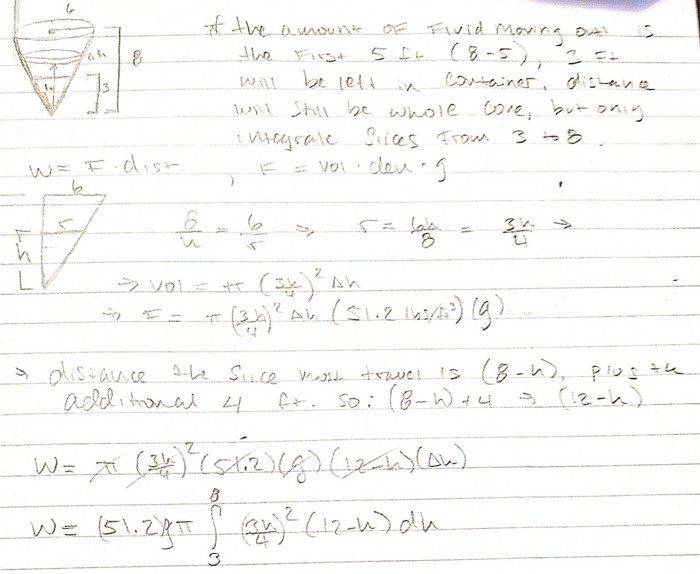 6
Δh
8
h
3
* the amount of Fluid moving out is
the First 5 ft (8-5), 3 Ft
will be left in container. distance
will still be whole cone, but only
integrate slices from 3 to 8.
W = F · dist , F = vol · den · g
6
r
h
8/h = 6/r ⇒ r = 6h/8 = 3h/4 ⇒
⇒ vol = π (3h/4)² Δh
⇒ F = π (3h/4)² Δh (51.2 lbs/ft³) (g)
⇒ distance the slice must travel is (8-h), plus the
additional 4 ft. so: (8-h)+4 ⇒ (12-h)
W = π (3h/4)² (51.2) (g) (12-h) (Δh)
W = (51.2)gπ ∫₃⁸ (3h/4)² (12-h) dh